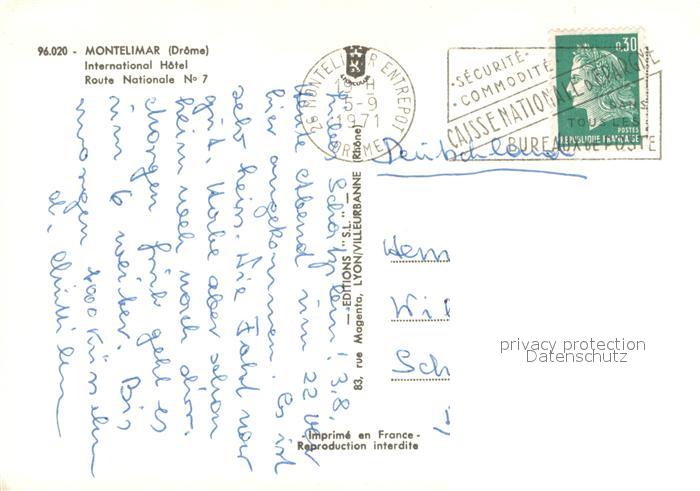 96.020 - MONTELIMAR (Drôme)
International Hôtel
Route Nationale No 7
26 MONTELIMAR ENTREPOT
19 H
5-9
1971
DROME
SÉCURITÉ
COMMODITÉ
CAISSE NATIONALE D'ÉPARGNE
DANS
TOUS LES
BUREAUX DE POSTE
0,30
POSTES
REPUBLIQUE FRANÇAISE
Deutschland
Herrn
Wil
Sch
privacy protection
Datenschutz
— EDITIONS "S.L." —
83, rue Magenta, LYON/VILLEURBANNE (Rhône)
-Imprimé en France-
Reproduction interdite
3.8.
heute Abend um 22 Uhr
hier angekommen. Es ist
sehr heiss. Die Fahrt war
gut. Habe aber schon
heim nach dir.
Morgen früh geht es
um 6 weiter. Bis
morgen 1000 Küsslein